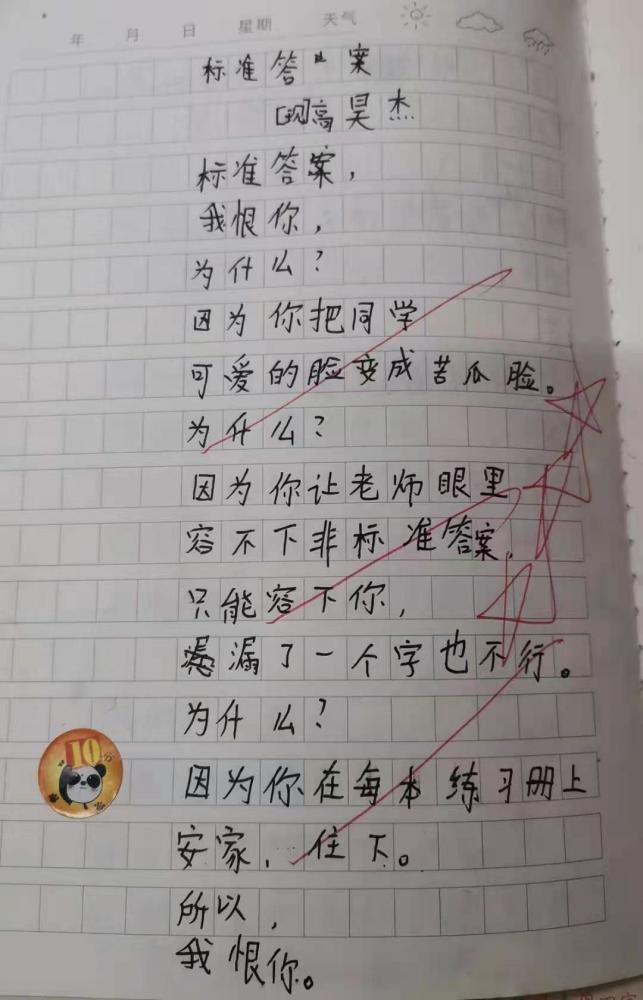 年 月 日 星期 天气
标准答案
[现]高昊杰
标准答案，
我恨你，
为什么？
因为你把同学
可爱的脸变成苦瓜脸。
为什么？
因为你让老师眼里
容不下非标准答案，
只能容下你，
漏了一个字也不行。
为什么？
因为你在每本练习册上
安家，住下。
所以，
我恨你。
10分